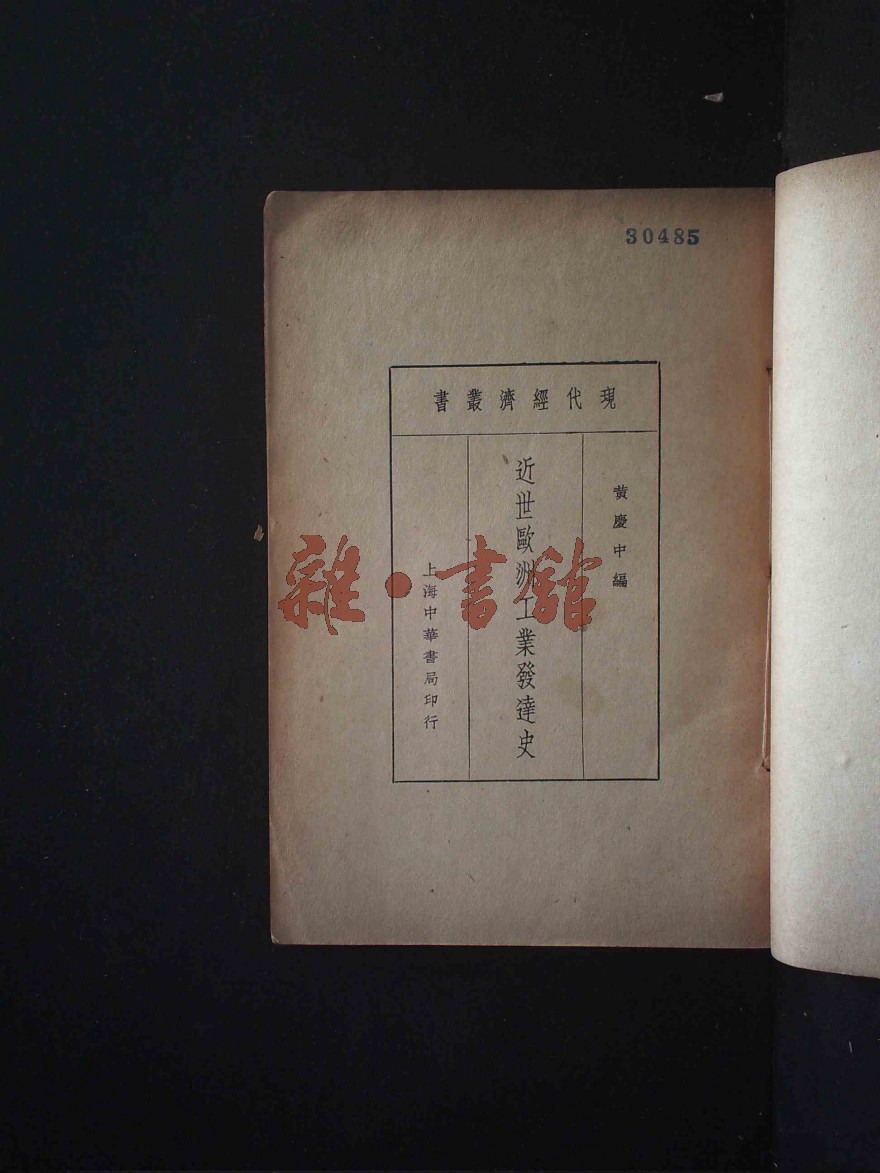 30485
現代經濟叢書
黃慶中編
近世歐洲工業發達史
上海中華書局印行
雜·書館